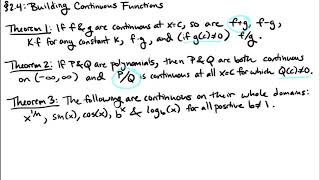 §2.4: Building Continuous Functions
Theorem 1: If f & g are continuous at x=c, so are f+g, f-g,
K·f for any constant K, f·g, and (if g(c)≠0) f/g.
Theorem 2: If P & Q are polynomials, then P & Q are both continuous
on (-∞,∞) and P/Q is continuous at all x=c for which Q(c)≠0.
Theorem 3: The following are continuous on their whole domains:
x^{1/n}, sin(x), cos(x), b^x & log_b(x) for all positive b≠1.